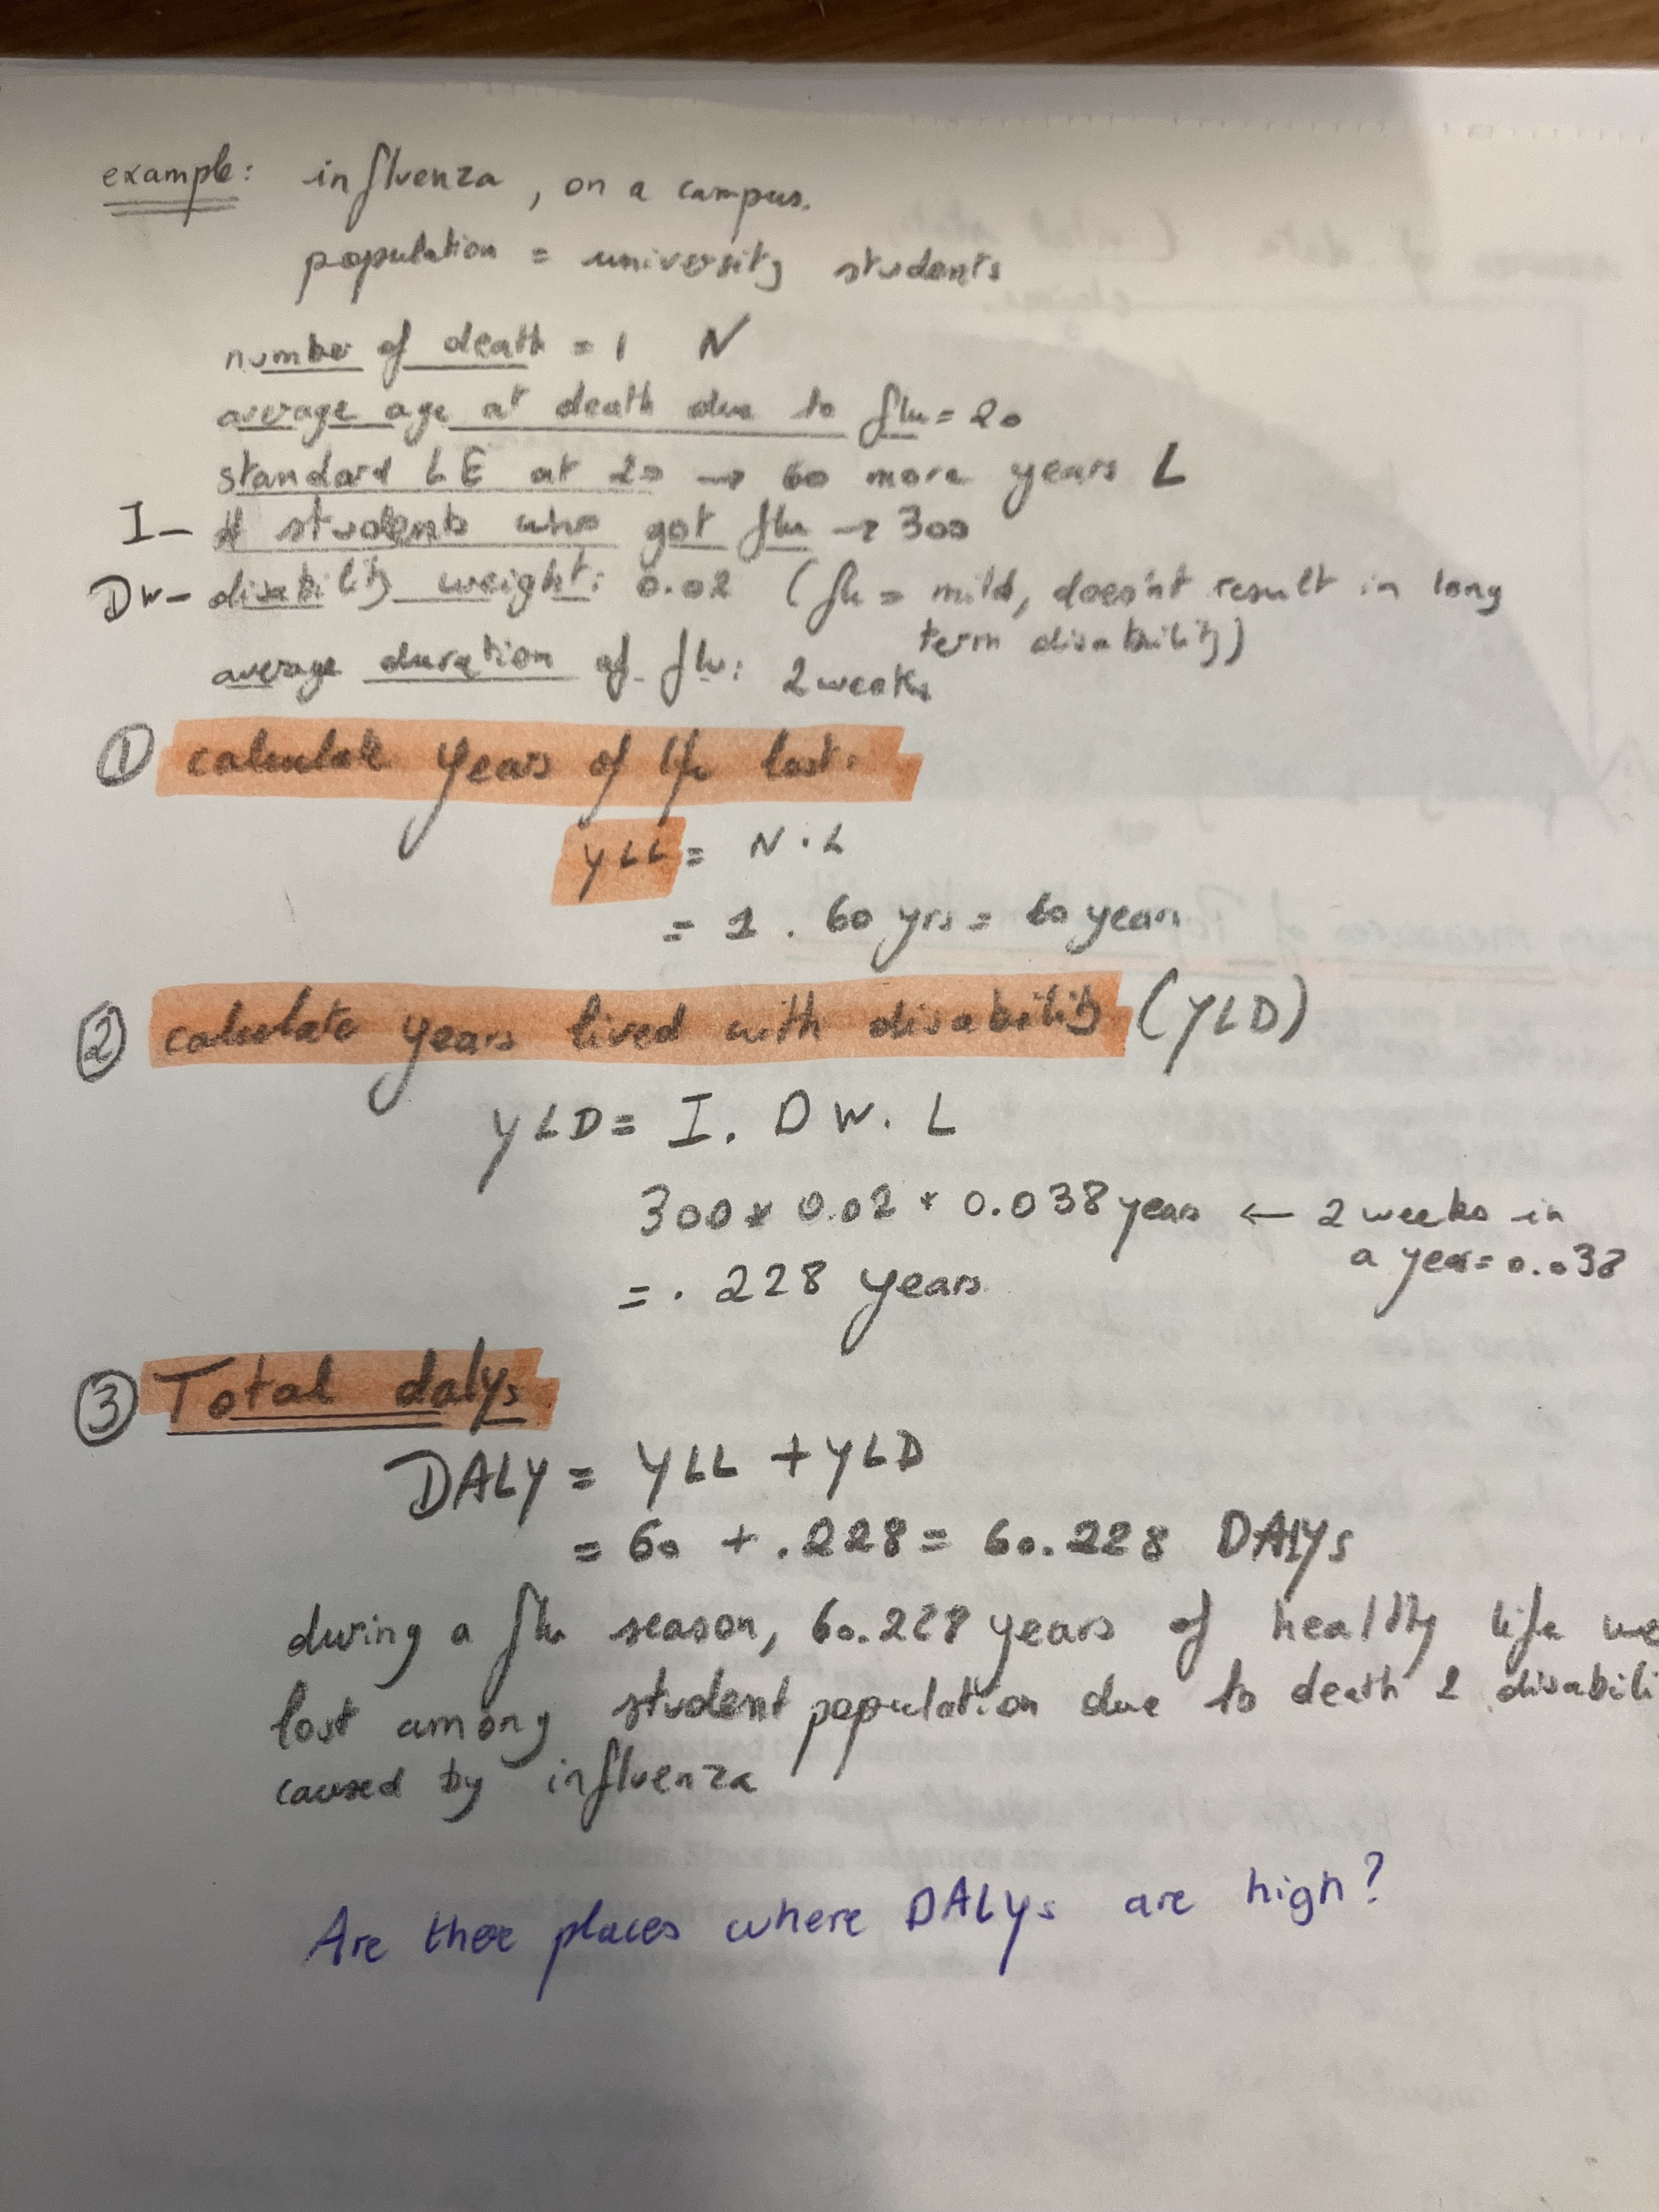 example: influenza, on a campus.
population = university students
number of death = 1 N
average age at death due to flu = 20
standard LE at 20 → 60 more years L
I- # students who got flu → 300
DW- disability weight: 0.02 (flu = mild, doesn't result in long
term disability)
average duration of flu: 2 weeks
① calculate years of life lost:
YLL = N . L
= 1 . 60 yrs = 60 years
② calculate years lived with disability (YLD)
YLD = I. DW. L
300 * 0.02 * 0.038 years ← 2 weeks in
a year = 0.038
= .228 years
③ Total dalys.
DALY = YLL + YLD
= 60 + .228 = 60.228 DALYs
during a flu season, 60.228 years of healthy life we
lost among student population due to death & disabili
caused by influenza
Are there places where DALYs are high?